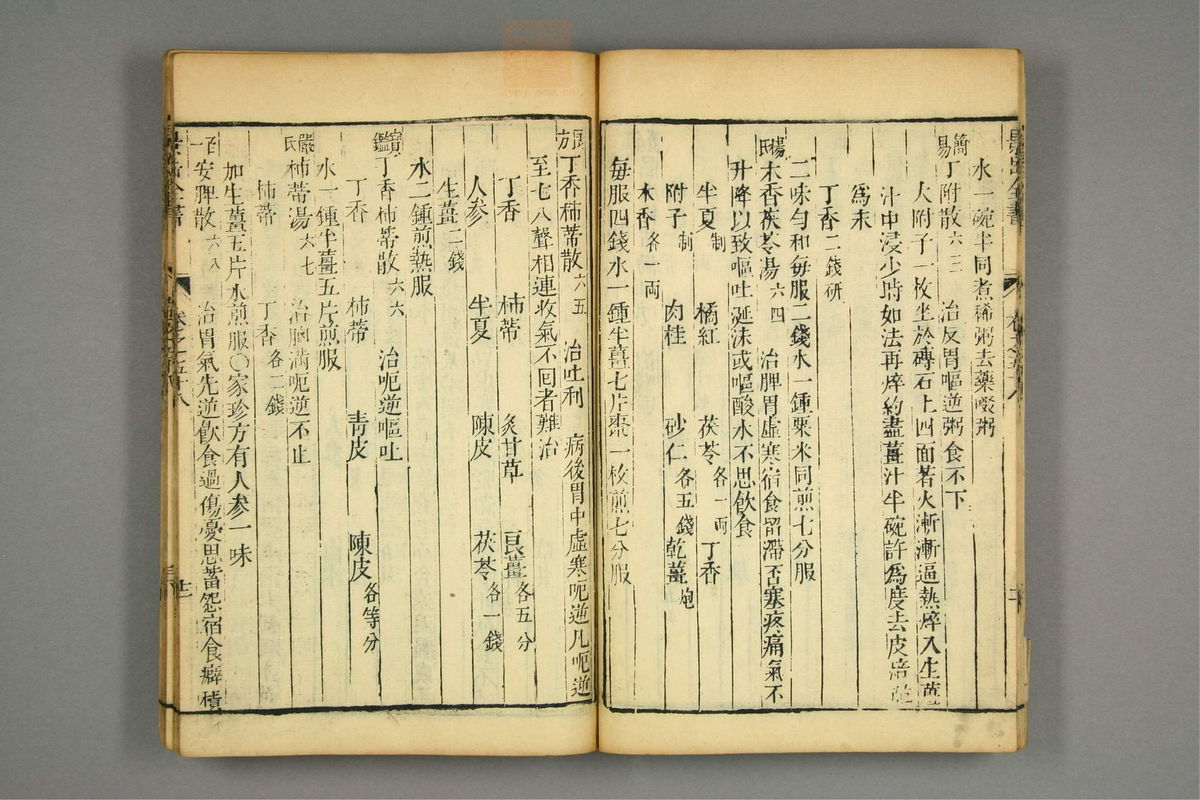 水一碗半同煮稀粥去藥啜粥
簡易丁附散六三 治反胃嘔逆粥食不下
大附子一枚坐於磚石上四面著火漸漸逼熱淬入生薑
汁中浸少時如法再淬約盡薑汁半碗許為度去皮焙乾
為末
丁香二錢研
二味勻和每服二錢水一鍾粟米同煎七分服
楊氏木香茯苓湯六四 治脾胃虛寒宿食留滯否塞疼痛氣不
升降以致嘔吐涎沫或嘔酸水不思飲食
半夏制 橘紅 茯苓各一兩 丁香
附子制 肉桂 砂仁各五錢 乾薑炮
木香各一兩
每服四錢水一鍾半薑七片棗一枚煎七分服
丁香柿蒂散六五 治吐利 病後胃中虛寒呃逆凡呃逆
至七八聲相連收氣不囘者難治
丁香 柿蒂 炙甘草 良薑各五分
人參 半夏 陳皮 茯苓各一錢
生薑二錢
水二鍾煎熱服
寶鑑丁香柿蒂散六六 治呃逆嘔吐
丁香 柿蒂 青皮 陳皮各等分
水一鍾半薑五片煎服
嚴氏柿蒂湯六七 治胸滿呃逆不止
柿蒂 丁香各二錢
加生薑五片水煎服〇家珍方有人參一味
百一安脾散六八 治胃氣先逆飲食過傷憂思蓄怨宿食癖積
景岳全書 卷之五十八